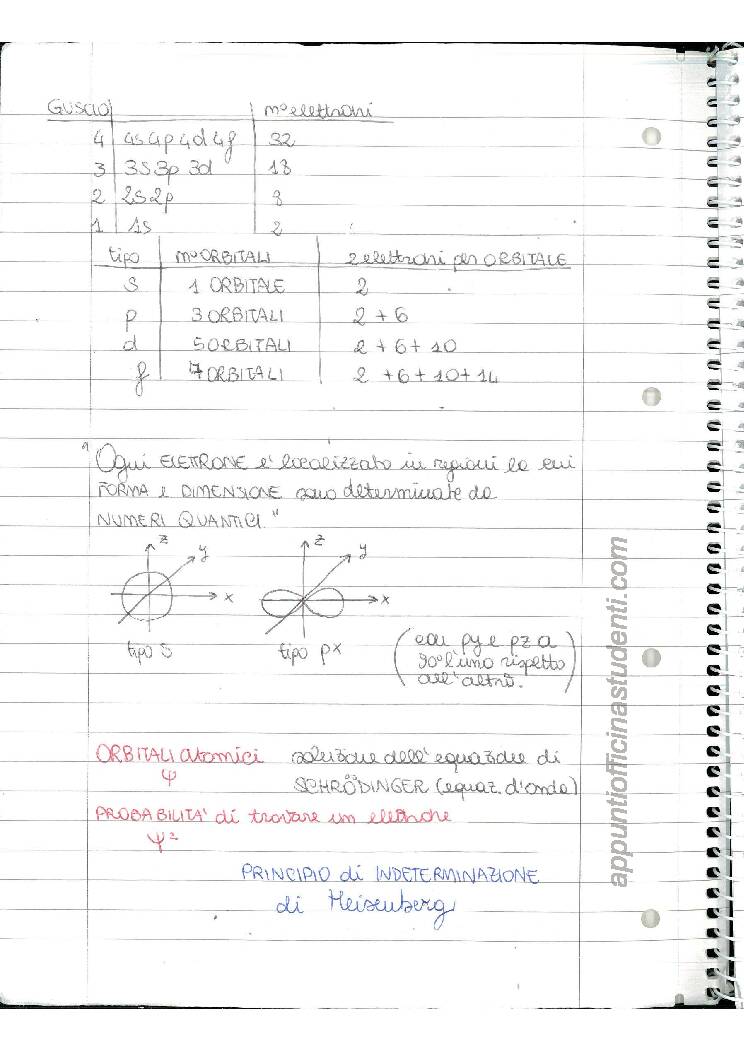 GUSCIO n° elettroni
4 4s 4p 4d 4f 32
3 3s 3p 3d 18
2 2s 2p 8
1 1s 2
tipo n° ORBITALI 2 elettroni per ORBITALE
S 1 ORBITALE 2
p 3 ORBITALI 2 + 6
d 5 ORBITALI 2 + 6 + 10
f 7 ORBITALI 2 + 6 + 10 + 14
"Ogni ELETTRONE e' localizzato in regioni la cui
FORMA e DIMENSIONE sono determinate da
NUMERI QUANTICI."
z y x
z y x
tipo S tipo px
(con py e pz a
90° l'uno rispetto
all'altro.)
ORBITALI atomici soluzione dell'equazione di
ψ SCHRÖDINGER (equaz. d'onda)
PROBABILITA' di trovare un elettrone
ψ²
PRINCIPIO di INDETERMINAZIONE
di Heisenberg
appuntiofficinastudenti.com